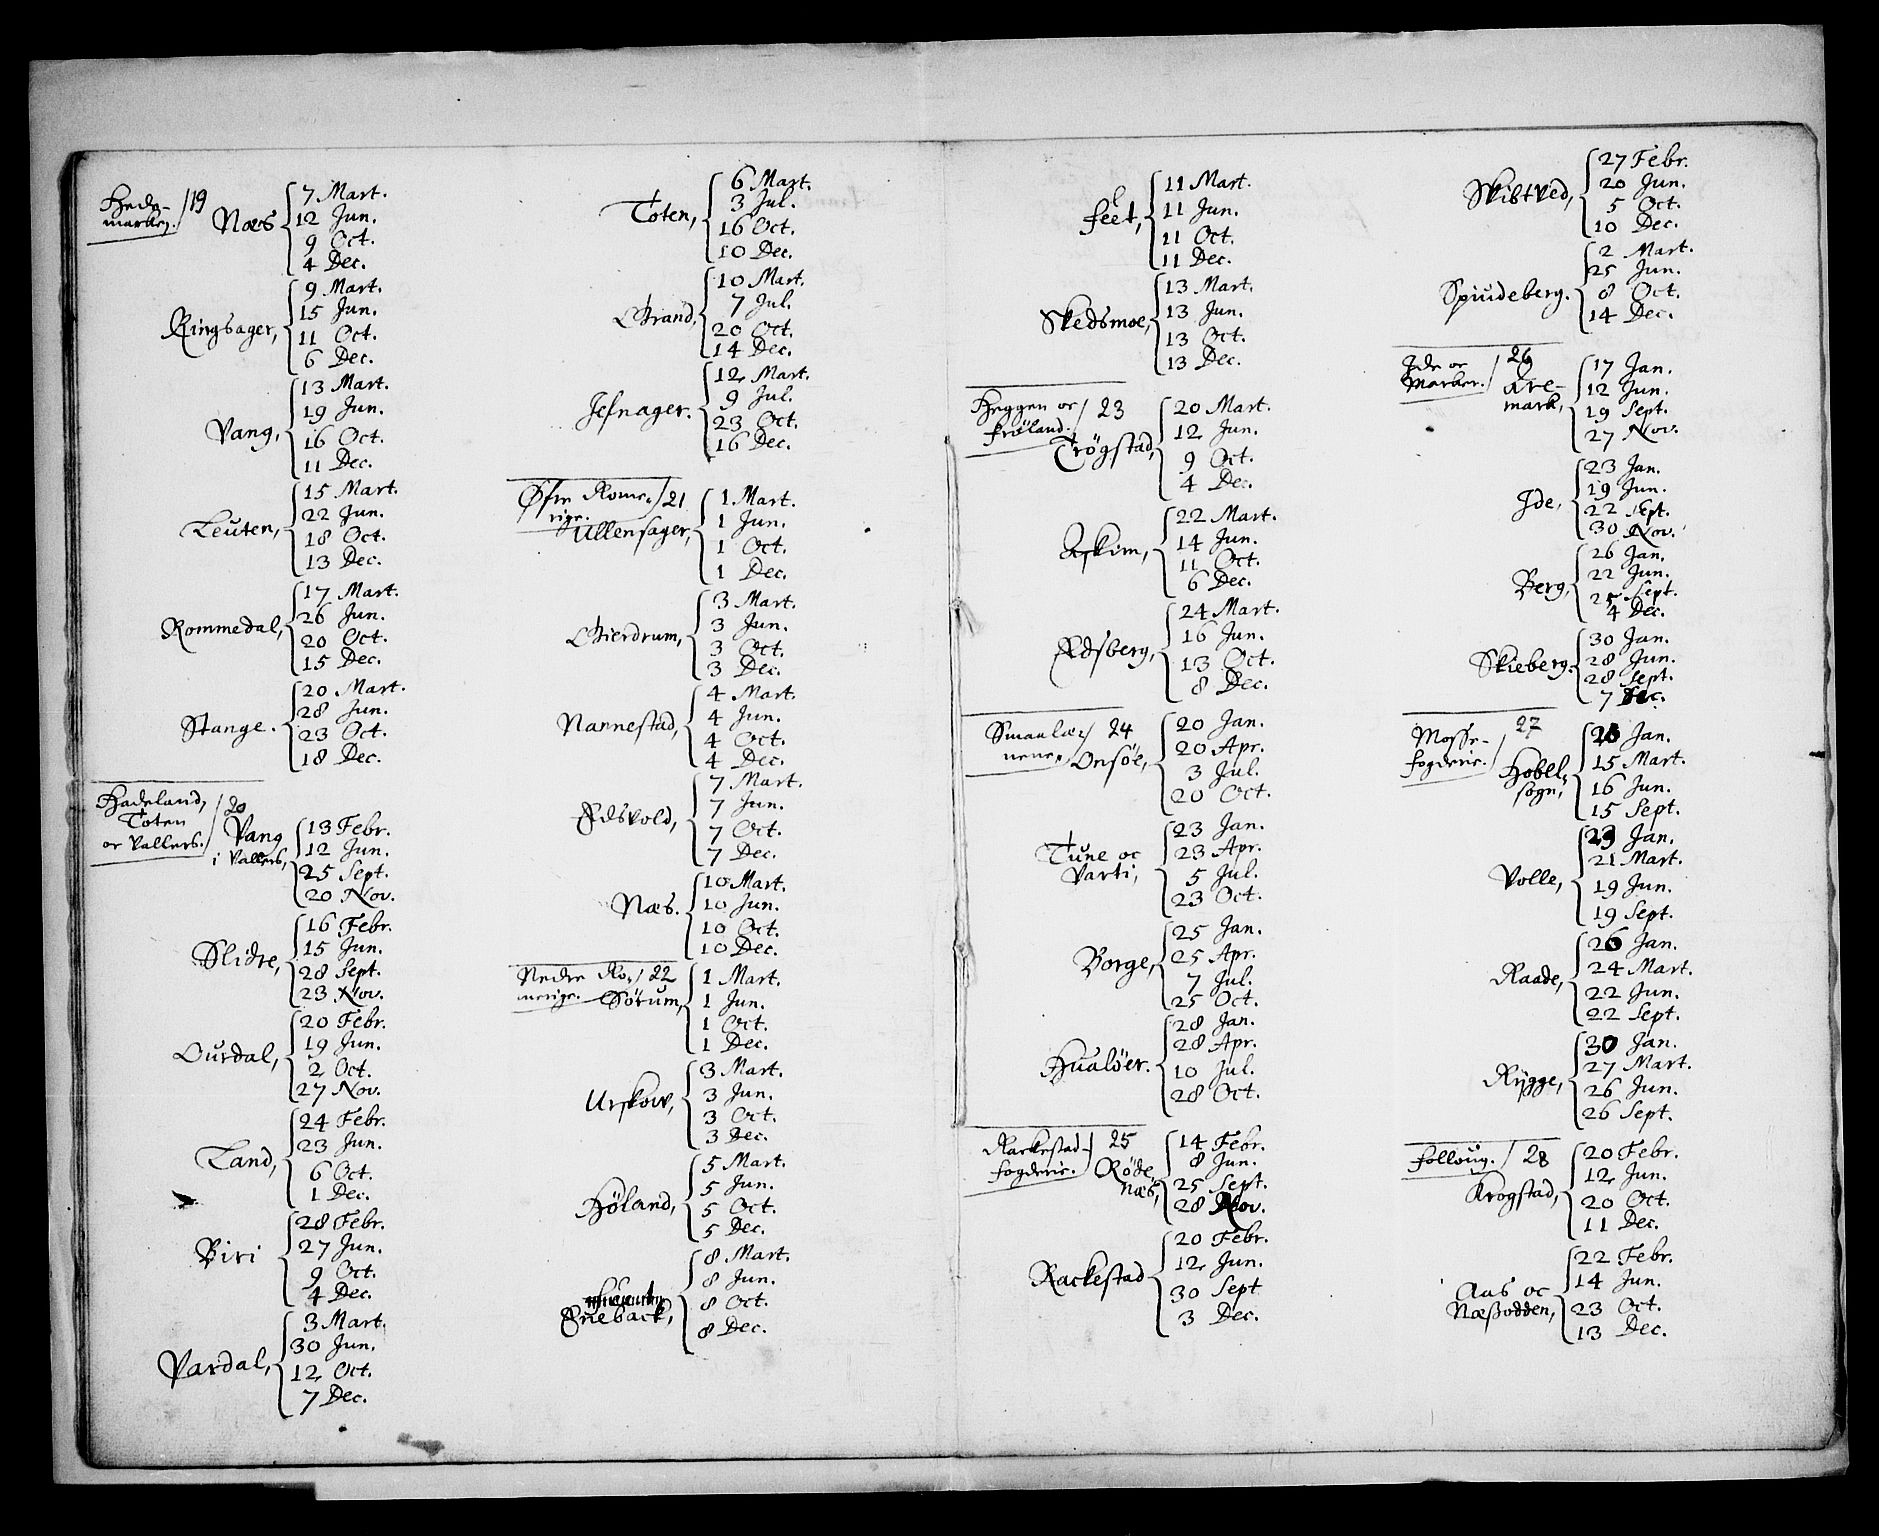 Hede-
marken. / 19
Næs
7 Mart.
12 Jun.
9 Oct.
4 Dec.
Ringsager,
9 Mart.
15 Jun.
11 Oct.
6 Dec.
Vang,
13 Mart.
19 Jun.
16 Oct.
11 Dec.
Leuten,
15 Mart.
22 Jun.
18 Oct.
13 Dec.
Rommedal,
17 Mart.
26 Jun.
20 Oct.
15 Dec.
Stange.
20 Mart.
28 Jun.
23 Oct.
18 Dec.
Hadeland,
Toten
oc Vallers. / 20
Vang
i Vallers,
13 Febr.
12 Jun.
25 Sept.
20 Nov.
Slidre,
16 Febr.
15 Jun.
28 Sept.
23 Nov.
Ourdal,
20 Febr.
19 Jun.
2 Oct.
27 Nov.
Land,
24 Febr.
23 Jun.
6 Oct.
1 Dec.
Biri
28 Febr.
27 Jun.
9 Oct.
4 Dec.
Vardal,
3 Mart.
30 Jun.
12 Oct.
7 Dec.
Toten,
6 Mart.
3 Jul.
16 Oct.
10 Dec.
Grand,
10 Mart.
7 Jul.
20 Oct.
14 Dec.
Jefnager.
12 Mart.
9 Jul.
23 Oct.
16 Dec.
Øfre Rome-
rige. / 21
Ullensager,
1 Mart.
1 Jun.
1 Oct.
1 Dec.
Gierdrum,
3 Mart.
3 Jun.
3 Oct.
3 Dec.
Nannestad,
4 Mart.
4 Jun.
4 Oct.
4 Dec.
Edsvold,
7 Mart.
7 Jun.
7 Oct.
7 Dec.
Næs.
10 Mart.
10 Jun.
10 Oct.
10 Dec.
Nedre Ro-
merige. / 22
Sörum,
1 Mart.
1 Jun.
1 Oct.
1 Dec.
Urskow,
3 Mart.
3 Jun.
3 Oct.
3 Dec.
Höland,
5 Mart.
5 Jun.
5 Oct.
5 Dec.
Eneback,
8 Mart.
8 Jun.
8 Oct.
8 Dec.
Feet,
11 Mart.
11 Jun.
11 Oct.
11 Dec.
Skedsmoe,
13 Mart.
13 Jun.
13 Oct.
13 Dec.
Heggen oc
Fröland. / 23
Trögstad,
20 Mart.
12 Jun.
9 Oct.
4 Dec.
Askim,
22 Mart.
14 Jun.
11 Oct.
6 Dec.
Edsberg,
24 Mart.
16 Jun.
13 Oct.
8 Dec.
Smaalæ-
nene. / 24
Onsöe,
20 Jan.
20 Apr.
3 Jul.
20 Oct.
Tune oc
Varti,
23 Jan.
23 Apr.
5 Jul.
23 Oct.
Borge,
25 Jan.
25 Apr.
7 Jul.
25 Oct.
Hualöer.
28 Jan.
28 Apr.
10 Jul.
28 Oct.
Rackestad-
fogderie. / 25
Röde,
næs,
14 Febr.
8 Jun.
25 Sept.
28 Nov.
Rackestad
20 Febr.
12 Jun.
30 Sept
3 Dec.
Skibtved,
27 Febr.
20 Jun.
5 Oct.
10 Dec.
Spiudeberg.
2 Mart.
25 Jun.
8 Oct.
14 Dec.
Ide oc
Marker. / 26
Are-
mark,
17 Jan.
12 Jun.
19 Sept.
27 Nov.
Ide,
23 Jan.
19 Jun.
22 Sept.
30 Nov.
Berg,
26 Jan.
22 Jun.
25 Sept.
4 Dec.
Skieberg.
30 Jan.
28 Jun.
28 Sept.
7 Dec.
Mosse-
fogderie. / 27
Hobell-
sogn,
Jan.
15 Mart.
16 Jun.
15 Sept.
Volle,
23 Jan.
21 Mart.
19 Jun.
19 Sept.
Raade,
26 Jan.
24 Mart.
22 Jun.
22 Sept.
Rygge,
30 Jan.
27 Mart.
26 Jun.
26 Sept.
Folloug. / 28
Krogstad,
20 Febr.
12 Jun.
20 Oct.
11 Dec.
Aas oc
Næßodden,
22 Febr.
14 Jun.
23 Oct.
13 Dec.